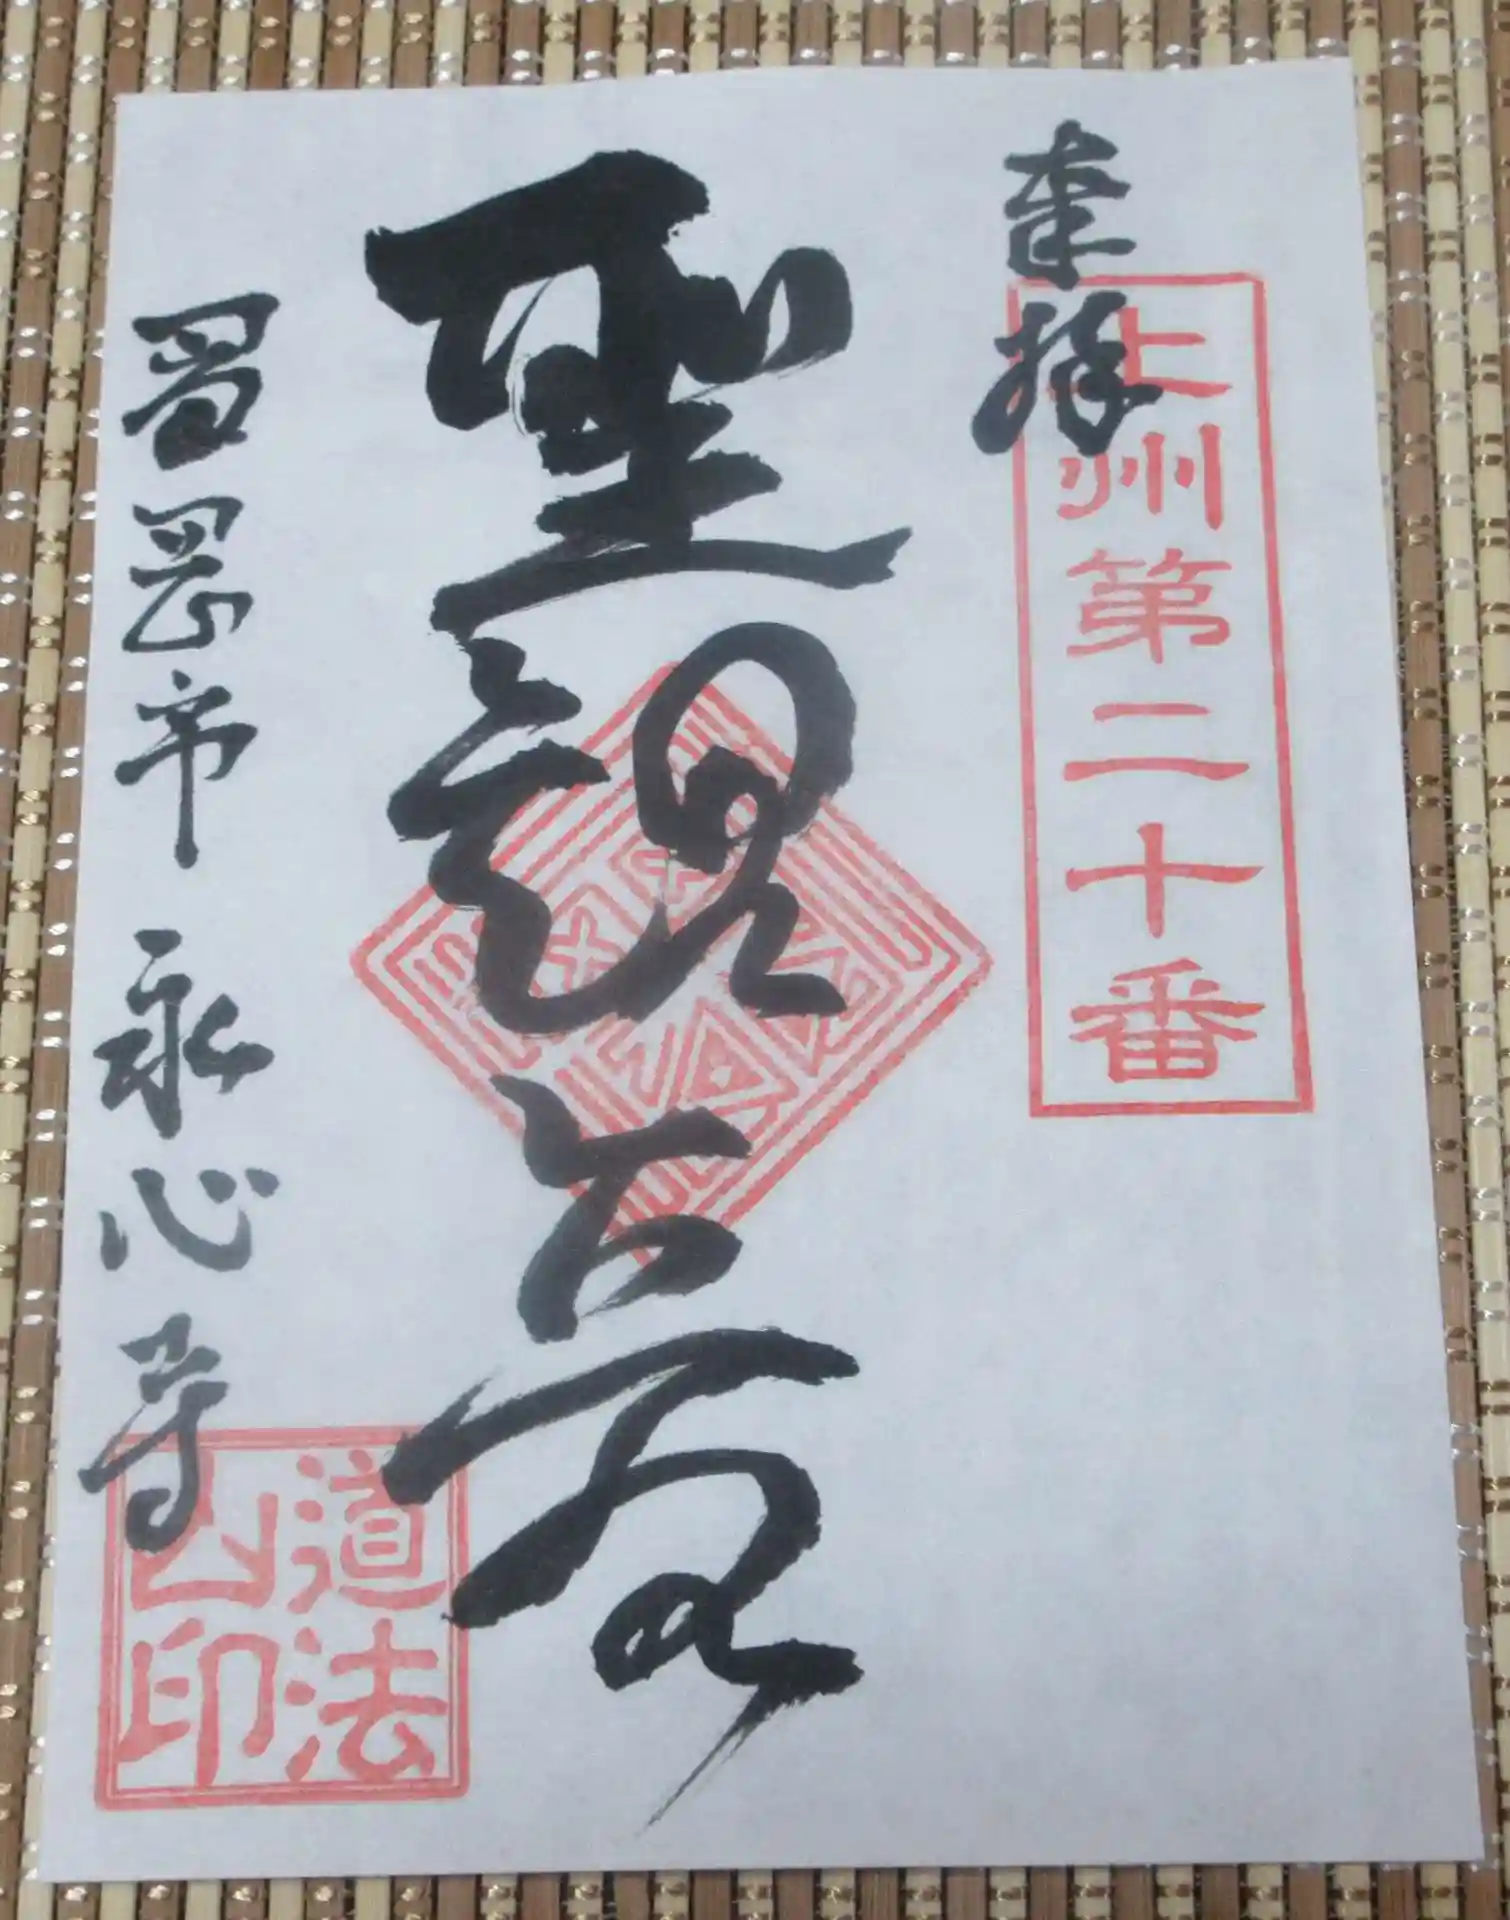 奉拝
上州第二十番
聖観音
富岡市 永心寺
道法
山印